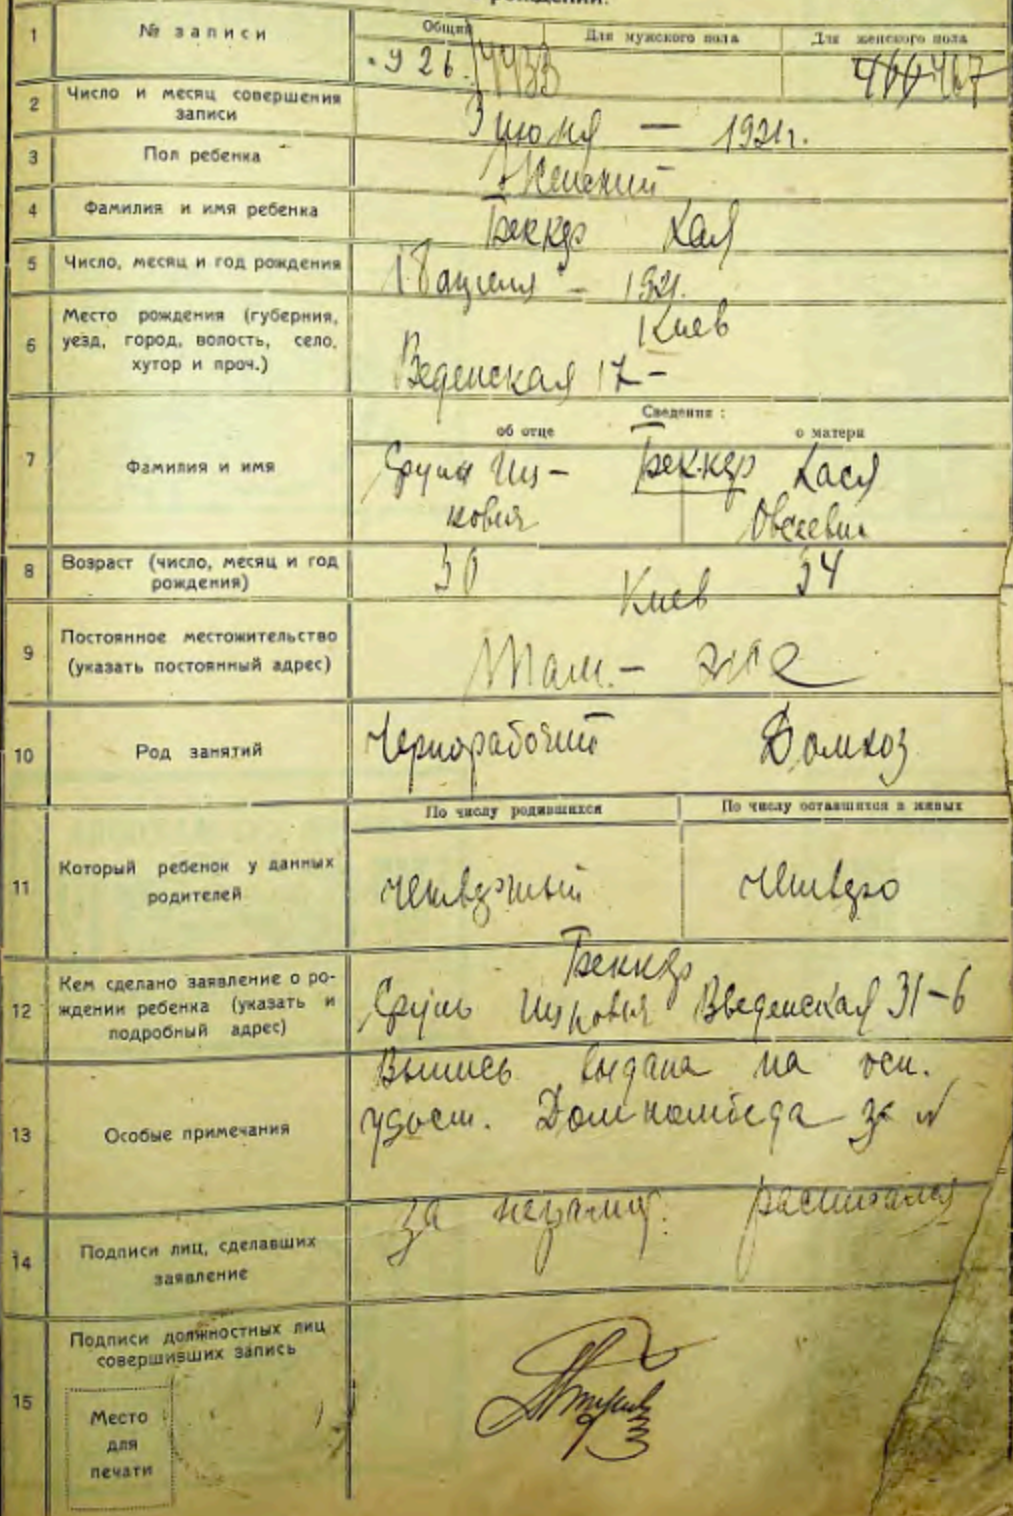 рождении.
1 № записи
Общий Для мужского пола Для женского пола
926. 467
2 Число и месяц совершения
записи
3 июня — 1921г.
3 Пол ребенка
Женский
4 Фамилия и имя ребенка
Беккер Хая
5 Число, месяц и год рождения
18 апреля - 1921.
6 Место рождения (губерния,
уезд, город, волость, село,
хутор и проч.)
Киев
Веденская 17-
7 Фамилия и имя
Сведения:
об отце о матери
Сруль Иц- Беккер Хася
ковья Овсеевна
8 Возраст (число, месяц и год
рождения)
34
9 Постоянное местожительство
(указать постоянный адрес)
Киев
Там-же
10 Род занятий
Чернорабочий Домхоз
11 Который ребенок у данных
родителей
По числу родившихся По числу оставшихся в живых
четвертый четверо
12 Кем сделано заявление о ро-
ждении ребенка (указать и
подробный адрес)
Беккер
Сруль Ицковья Введенская 31-6
13 Особые примечания
Выпись выдана на осн.
удост. Домкомбеда за №
14 Подписи лиц, сделавших
заявление
за неграмот. расписался
15 Подписи должностных лиц
совершивших запись
Место
для
печати